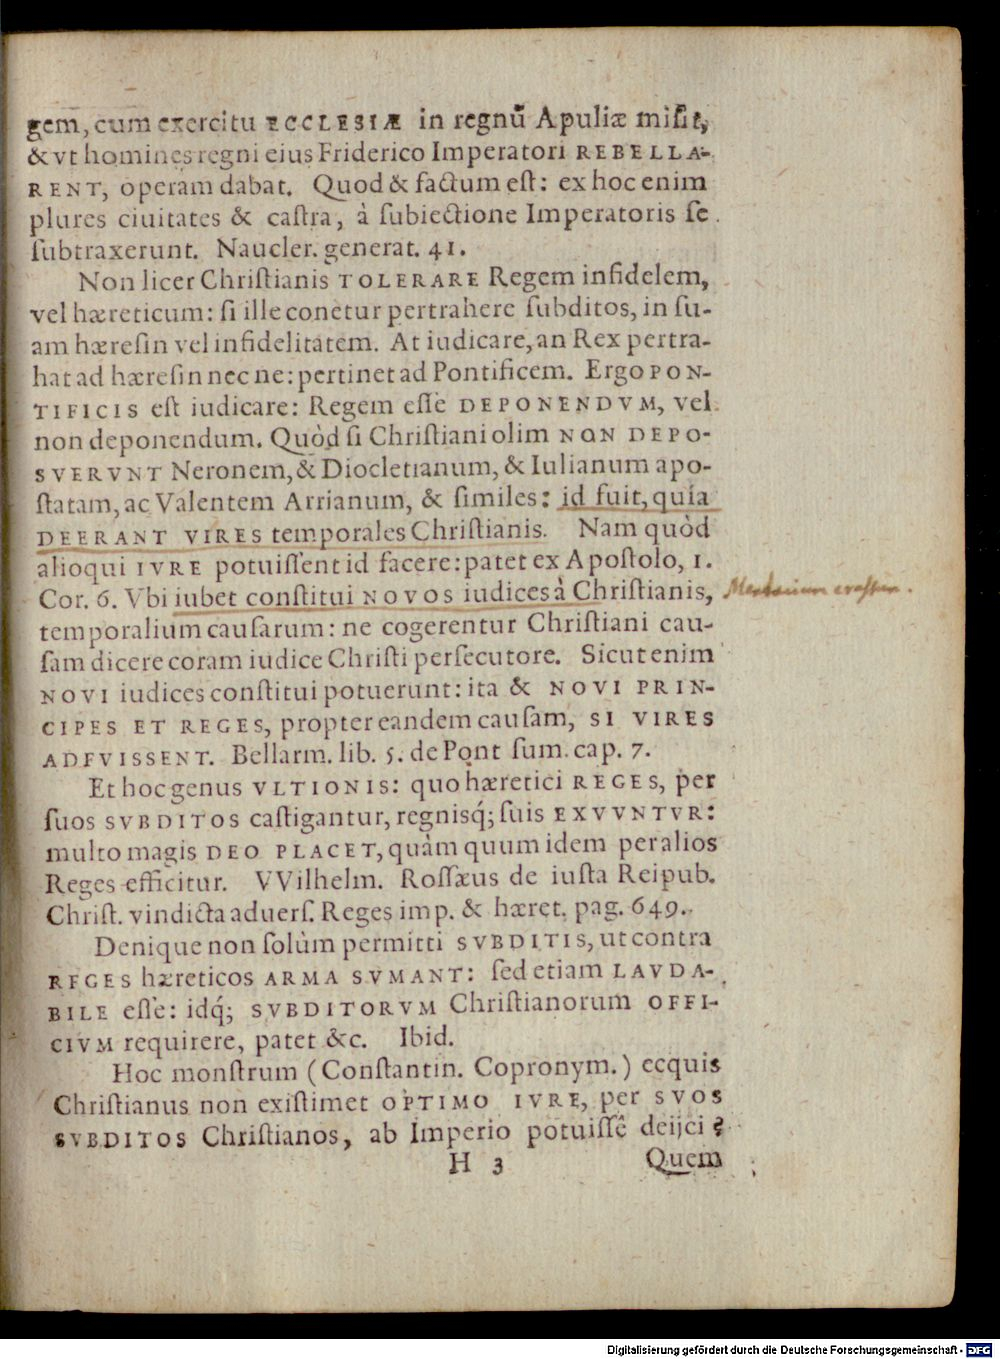 gem, cum exercitu ECCLESIÆ in regnũ Apuliæ misit,
& vt homines regni eius Friderico Imperatori REBELLA-
RENT, operám dabat. Quod & factum est: ex hoc enim
plures ciuitates & castra, à subiectione Imperatoris se
subtraxerunt. Naucler. generat. 41.
Non licer Christianis TOLERARE Regem infidelem,
vel hæreticum: si ille conetur pertrahere subditos, in su-
am hæresin vel infidelitatem. At iudicare, an Rex pertra-
hat ad hæresin nec ne: pertinet ad Pontificem. Ergo PON-
TIFICIS est iudicare: Regem esse DEPONENDVM, vel
non deponendum. Quòd si Christiani olim NON DEPO-
SVERVNT Neronem, & Diocletianum, & Iulianum apo-
statam, ac Valentem Arrianum, & similes: id fuit, quia
DEERANT VIRES temporales Christianis. Nam quòd
alioqui IVRE potuissent id facere: patet ex Apostolo, 1.
Cor. 6. Vbi iubet constitui NOVOS iudices à Christianis,
temporalium causarum: ne cogerentur Christiani cau-
sam dicere coram iudice Christi persecutore. Sicut enim
NOVI iudices constitui potuerunt: ita & NOVI PRIN-
CIPES ET REGES, propter eandem causam, SI VIRES
ADFVISSENT. Bellarm. lib. 5. de Pont sum. cap. 7.
Et hoc genus VLTIONIS: quo hæretici REGES, per
suos SVBDITOS castigantur, regnisq́; suis EXVVNTVR:
multo magis DEO PLACET, quàm quum idem per alios
Reges efficitur. VVilhelm. Rossæus de iusta Reipub.
Christ. vindicta aduers. Reges imp. & hæret. pag. 649.
Denique non solùm permitti SVBDITIS, ut contra
REGES hæreticos ARMA SVMANT: sed etiam LAVDA-
BILE esse: idq́; SVBDITORVM Christianorum OFFI-
CIVM requirere, patet &c. Ibid.
Hoc monstrum (Constantin. Copronym.) ecquis
Christianus non existimet OPTIMO IVRE, per SVOS
SVBDITOS Christianos, ab Imperio potuissê deijci?
H 3 Quem
Digitalisierung gefördert durch die Deutsche Forschungsgemeinschaft - DFG